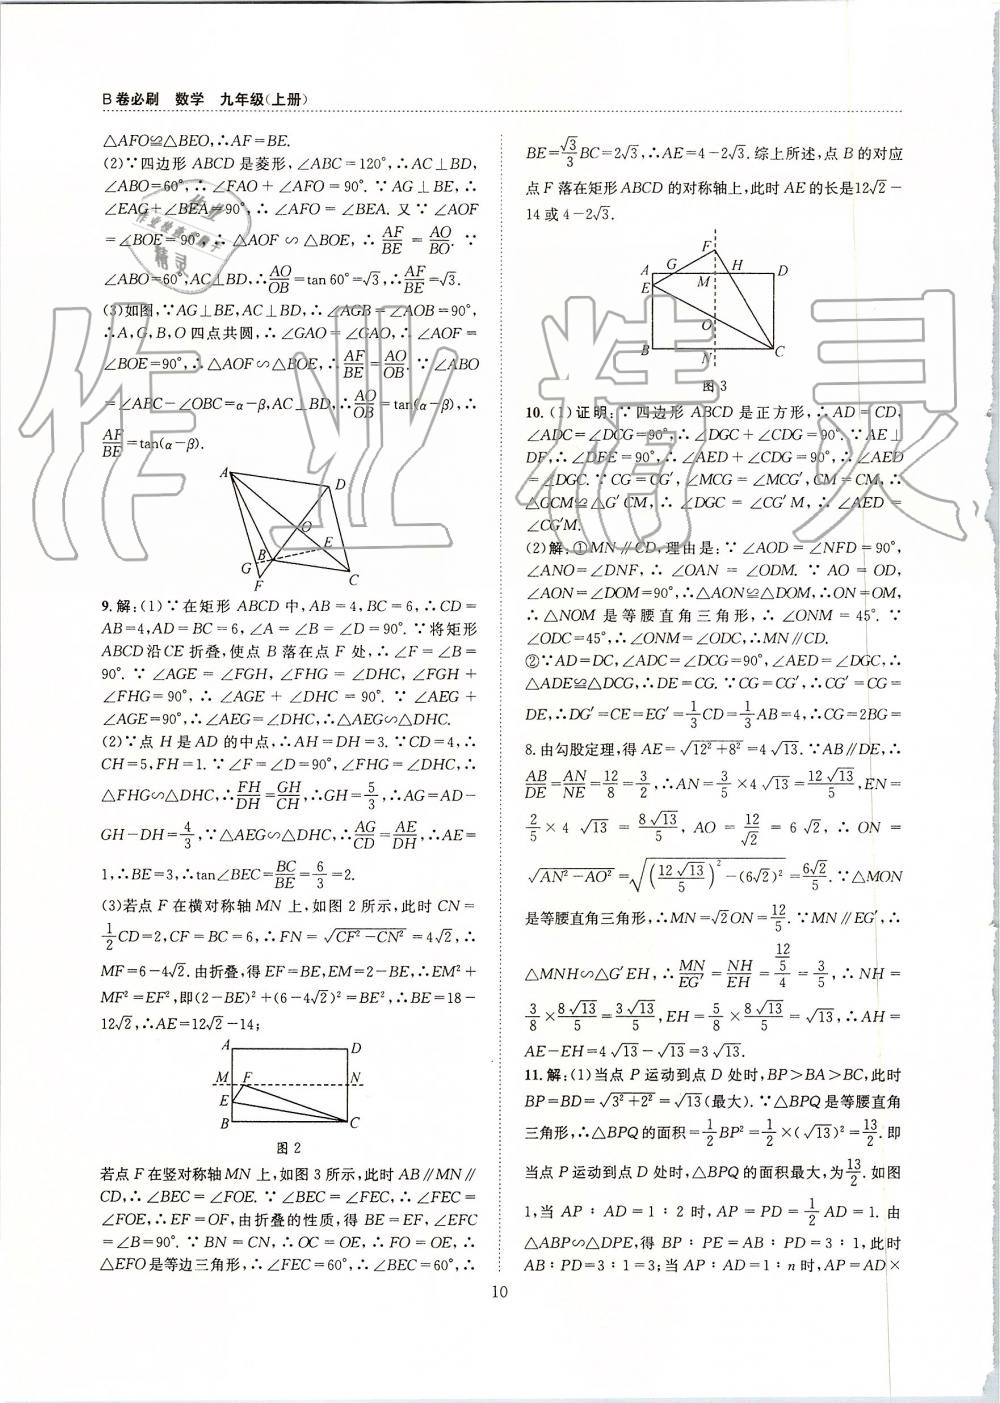 B卷必刷 数学 九年级(上册)
△AFO≌△BEO,∴AF=BE.
(2)∵四边形 ABCD 是菱形,∠ABC=120°,∴AC⊥BD,
∠ABO=60°,∴∠FAO+∠AFO=90°.∵AG⊥BE,∴
∠EAG+∠BEA=90°,∴∠AFO=∠BEA.又∵∠AOF
=∠BOE=90°,∴△AOF∽△BOE,∴AF/BE=AO/BO.∵
∠ABO=60°,AC⊥BD,∴AO/OB=tan60°=√3,∴AF/BE=√3.
(3)如图,∵AG⊥BE,AC⊥BD,∴∠AGB=∠AOB=90°,
∴A,G,B,O四点共圆,∴∠GAO=∠GAO,∴∠AOF=
∠BOE=90°,∴△AOF∽△BOE,∴AF/BE=AO/OB.∵∠ABO
=∠ABC-∠OBC=α-β,AC⊥BD,∴AO/OB=tan(α-β),∴
AF/BE=tan(α-β).
A
D
O
E
B
G
F
C
9.解:(1)∵在矩形 ABCD 中,AB=4,BC=6,∴CD=
AB=4,AD=BC=6,∠A=∠B=∠D=90°.∵将矩形
ABCD沿CE折叠,使点 B 落在点 F 处,∴∠F=∠B=
90°.∵∠AGE=∠FGH,∠FHG=∠DHC,∠FGH+
∠FHG=90°,∴∠AGE+∠DHC=90°.∵∠AEG+
∠AGE=90°,∴∠AEG=∠DHC,∴△AEG∽△DHC.
(2)∵点 H 是 AD 的中点,∴AH=DH=3.∵CD=4,∴
CH=5,FH=1.∵∠F=∠D=90°,∠FHG=∠DHC,∴
△FHG∽△DHC,∴FH/DH=GH/CH,∴GH=5/3,∴AG=AD-
GH-DH=4/3,∵△AEG∽△DHC,∴AG/CD=AE/DH,∴AE=
1,∴BE=3,∴tan∠BEC=BC/BE=6/3=2.
(3)若点 F 在横对称轴 MN 上,如图 2 所示,此时 CN=
1/2CD=2,CF=BC=6,∴FN=√(CF²-CN²)=4√2,∴
MF=6-4√2.由折叠,得 EF=BE,EM=2-BE,∴EM²+
MF²=EF²,即(2-BE)²+(6-4√2)²=BE²,∴BE=18-
12√2,∴AE=12√2-14;
A
D
M
F
N
E
B
C
图 2
若点 F 在竖对称轴MN 上,如图 3 所示,此时 AB∥MN∥
CD,∴∠BEC=∠FOE.∵∠BEC=∠FEC,∴∠FEC=
∠FOE,∴EF=OF,由折叠的性质,得 BE=EF,∠EFC
=∠B=90°.∵BN=CN,∴OC=OE,∴FO=OE,∴
△EFO是等边三角形,∴∠FEC=60°,∴∠BEC=60°,∴
BE=√3/3BC=2√3,∴AE=4-2√3.综上所述,点 B 的对应
点F 落在矩形 ABCD 的对称轴上,此时 AE 的长是12√2-
14或4-2√3.
F
G
H
A
M
D
E
O
B
N
C
图3
10.(1)证明:∵四边形 ABCD 是正方形,∴AD=CD,
∠ADC=∠DCG=90°,∴∠DGC+∠CDG=90°.∵AE⊥
DF,∴∠DFE=90°,∴∠AED+∠CDG=90°,∴∠AED
=∠DGC.∵CG=CG′,∠MCG=∠MCG′,CM=CM,∴
△GCM≌△G′CM,∴∠DGC=∠CG′M,∴∠AED=
∠CG′M.
(2)解:①MN∥CD,理由是:∵∠AOD=∠NFD=90°,
∠ANO=∠DNF,∴∠OAN=∠ODM.∵AO=OD,
∠AON=∠DOM=90°,∴△AON≌△DOM,∴ON=OM,
∴△NOM 是等腰直角三角形,∴∠ONM=45°.∵
∠ODC=45°,∴∠ONM=∠ODC,∴MN∥CD.
②∵AD=DC,∠ADC=∠DCG=90°,∠AED=∠DGC,∴
△ADE≌△DCG,∴DE=CG.∵CG=CG′,∴CG′=CG=
DE,∴DG′=CE=EG′=1/3CD=1/3AB=4,∴CG=2BG=
8.由勾股定理,得 AE=√(12²+8²)=4√13.∵AB∥DE,∴
AB/DE=AN/NE=12/8=3/2,∴AN=3/5×4√13=12√13/5,EN=
2/5×4√13=8√13/5,AO=12/√2=6√2,∴ON=
√(AN²-AO²)=√((12√13/5)²-(6√2)²)=6√2/5.∵△MON
是等腰直角三角形,∴MN=√2ON=12/5.∵MN∥EG′,∴
△MNH∽△G′EH,∴MN/EG′=NH/EH=(12/5)/4=3/5,∴NH=
3/8×8√13/5=3√13/5,EH=5/8×8√13/5=√13,∴AH=
AE-EH=4√13-√13=3√13.
11.解:(1)当点 P 运动到点 D 处时,BP>BA>BC,此时
BP=BD=√(3²+2²)=√13(最大).∵△BPQ是等腰直角
三角形,∴△BPQ的面积=1/2BP²=1/2×(√13)²=13/2.即
当点 P运动到点 D 处时,△BPQ 的面积最大,为13/2.如图
1,当 AP∶AD=1∶2 时,AP=PD=1/2AD=1.由
△ABP∽△DPE,得 BP∶PE=AB∶PD=3∶1,此时
AB∶PD=3∶1=3;当 AP∶AD=1∶n 时,AP=AD×
10
作业精灵